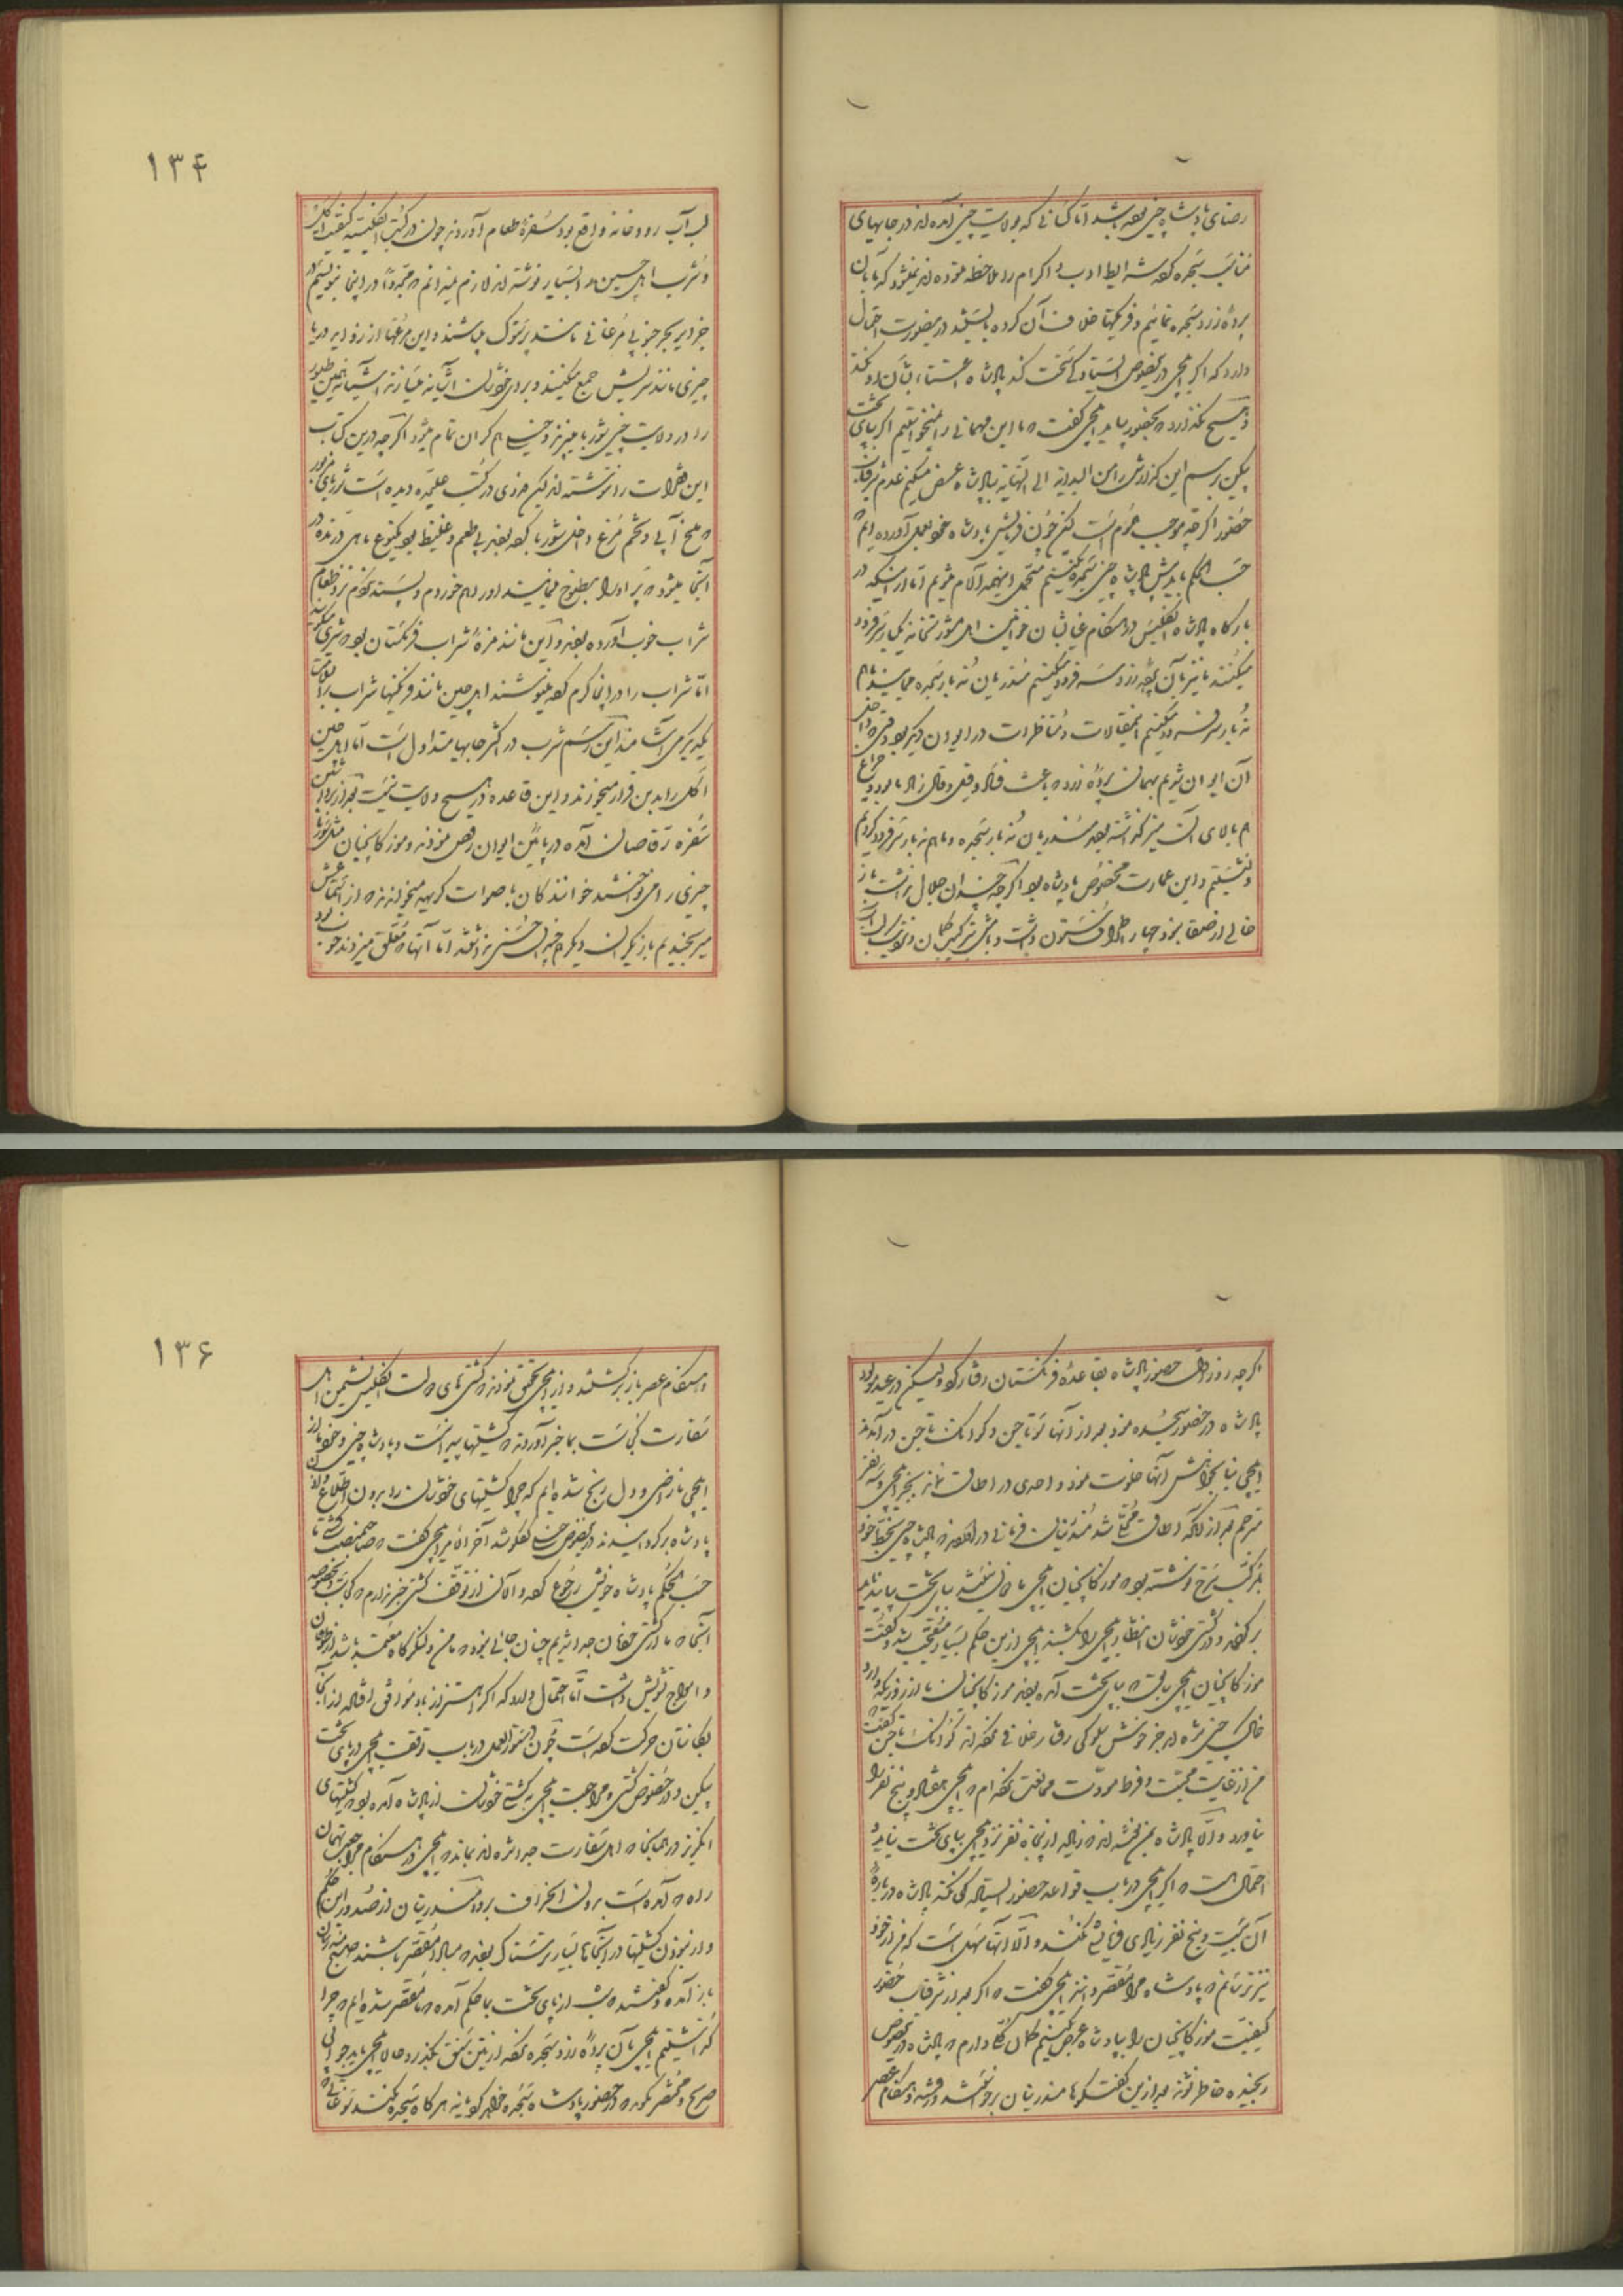 رضای پادشاه چین بوده باشد اما کسانی که بولایت چین آمده اند در جاهای
مناسب سجده که شرایط ادب و اکرام را ملاحظه نموده اند نمیشود که بآن
پرده زرد سجده نمائیم و فرنگیها خلاف آن کرده باشند درینصورت احتمال
دارد که اگر ایلچی درینخصوص ایستادگی سخت کند پادشاه اعتنا بشان او نکند
و هیچ نگذارد بحضور بیاید ایلچی گفت ما این مهمانی را نمیخواستیم اگر بپای تخت
پکین برسم این گزارش را من البدایه الی النهایه بپادشاه عرض میکنم عدم شرفیاب
حضور اگر چه موجب غرم است لیکن چون فرمایش پادشاه خود بعمل آورده ایم
حسب الحکم پادشاه چین سجده نکنیم متحمل اینهمه آلام شویم اما از اینکه در
بارگاه پادشاه انگلیس در هنگام غیاب شان خوانین اهل مشورتخانه یکبار سر فرود
میکنند ما نیز بآن پرده زرد سه فرود میکنیم مندرینان نه بار سجده نمایند ما هم
نه بار سر فرود میکنیم اینمقالات و مناظرات در ایوان دیگر بود وقتیکه داخل
آن ایوان شدیم بهمان پرده زرد که باعث قیل و قال زیاد ما بود و چراغ
هم بالای آن میز گذاشته بودند مندرینان نه بار سجده و ما هم نه بار سر فرود کردیم
و نشستیم و این عمارت مخصوص پادشاه بود اگر چه چندان جلال نداشت باز
خالی از صفا نبود چهار اطراف ستون داشت
۱۳۴
لب آب رودخانه واقع بود سفره طعام آوردند چون در کتب انگلیسیه کیفیت اکل
و شرب اهل چین را بسیار نوشته اند لازم نمیدانم که مجدداً در اینجا بنویسم در
جزایر بحر جنوبی مرغانی مانند پرستوک میباشند و این مرغها از روی دریا
چیزی مانند سریش جمع میکنند و برای خودشان آشیانه میسازند آشیانه همین طیور
را در ولایت چین شوربا میپزند و خیلی هم گران تمام میشود اگر چه درین کتاب
این فقرات را ننوشته اند لیکن فدوی در کتب علیحده دیده است شوربای مزبور
میخ آبی و تخم مرغ داخل شوربا کرده بودند بی طعم و غلیظ بود یکنوع ماهی درنده در
آنجا میشود پر او را مطبوخ نمایند اورا هم خوردم و پسند نکردم نزد طعام
شراب خوب آورده بودند و این مانند مزه شراب فرنگستان بود
اما شراب را در اینجا گرم کرده مینوشند اهل چین مانند فرنگیها شراب را
یکدیگر می آشامند این رسم شرب در اکثر جاها متداول است اما اهل چین
اکل را بدین قرار میخورند و این قاعده در هیچ ولایت نیست بعد از برداشتن
سفره رقاصان آمده در پائین ایوان رقص نمودند و موزکانچیان مثل شوربا
چیزی را می نواختند خوانندگان با صوات کریهه میخواندند که از استماعش
میرنجیدیم بازیگران دیگرهم چندان حسنی نداشتند اما آنها که معلق میزدند خوب بود
اگر چه روز اول حضور پادشاه بقاعده فرنگستان رفتار کرد ولیکن در عید مولود
پادشاه در حضور سجده نمود بعد از آنها توتاجین و کردانک تاجین در آمدند
ایلچی بنا بخواهش آنها خلوت نمود و احدی در اطاق نماند بجز ایلچی و سه نفر
مترجم بعد از آنکه اطاق مخلی شد مندرینان فرمانی در آوردند که پادشاه چین بخط خود
بمرکب سرخ نوشته بود که موزکانچیان ایلچی ما دل نیستند بپای تخت بیایند باید
برگردند و در کشتی خودشان انتظار ایلچی را بکشند ایلچی ازین حکم بسیار متعجب شد و گفت
موزکانچیان ایلچی سابق که بپای تخت آمده بودند موزکانچیان ما از روزیکه وارد
خاک چین شده اند جز خوش سلوکی رفتار خلافی نکرده اند کردانک تاجین گفت
من از غایت محبت و فرط مودت مخالفت نکرده ام که ایلچی هفتاد و پنج نفر را
بیاورد و الا پادشاه بمن نوشته اند که زیاده از پنجاه نفر نزد ایلچی بپای تخت نیاید
احتمال هست که اگر ایلچی در باب قواعد حضور ایستادگی نکند پادشاه در باره
آن بیست و پنج نفر زیادی فرمایشی نکند و الا آنها سهل است که من از خود
نیز ترسانم که پادشاه مرا مقصر داند ایلچی گفت که اگر بعد از شرفیاب حضور
کیفیت موزکانچیان را بپادشاه عرض کنیم گمان کلی دارم که پادشاه درینخصوص
رنجیده خاطر نشوند بعد ازین گفتگوها مندرینان برخواستند و رفتند و هنگام عصر
۱۳۶
و هنگام عصر باز برگشتند و از ایلچی تحقیق نمودند که کشتی های دولت انگلیس نشیمن اهل
سفارت کجاست بما خبر آوردند که کشتیها پیدا نیست و پادشاه چین و خود ما از
ایلچی ناراضی و دل رنج شده ایم که چرا کشتیهای خودشان را بدون اطلاع و اذن
پادشاه برگردانیدند درینخصوص خیلی گفتگو شد آخر الامر ایلچی گفت که صاحبمنصب کشتیها
حسب الحکم پادشاه خویش رجوع کرده و الان از توقف کشتی خبر ندارم که کجاست بخصوصه
آنجا که ما از کشتی خودمان جدا شدیم چنان جائی نبود که مامن و لنگرگاه معتمد باشد از طوفان
و امواج تشویش داشت اما احتمال دارد که اگر وزیدن باد موافق اقبال از آنجا
بکانتان حرکت کرده است چون دستور العمل در باب توقف ایلچی در پای تخت
پکین و در خصوص کشتی و مراجعت ایلچی بکشتی خودشان از پادشاه آمده بود که کشتیهای
انگریز در همانجا که اهل سفارت جدا شده اند بمانند که ایلچی در هنگام مراجعت بهمان
راه که آمده است بدون انحراف برود مندرینان از صدور این حکم
و از نبودن کشتیها در آنجا بسیار ترسناک بودند که مبادا مقصر باشند صبح مندرینان
باز آمده و گفتند دیشب از پای تخت بما حکم آمده که ما مقصر شده ایم که چرا
گذاشتیم ایلچی بآن پرده زرد سجده نکرده از تین سنق بگذرد و حالا ایلچی باید جوابی
صریح و مختصر بگوید که در حضور پادشاه سجده خواهد کرد یا نه هرگاه سجده نکند